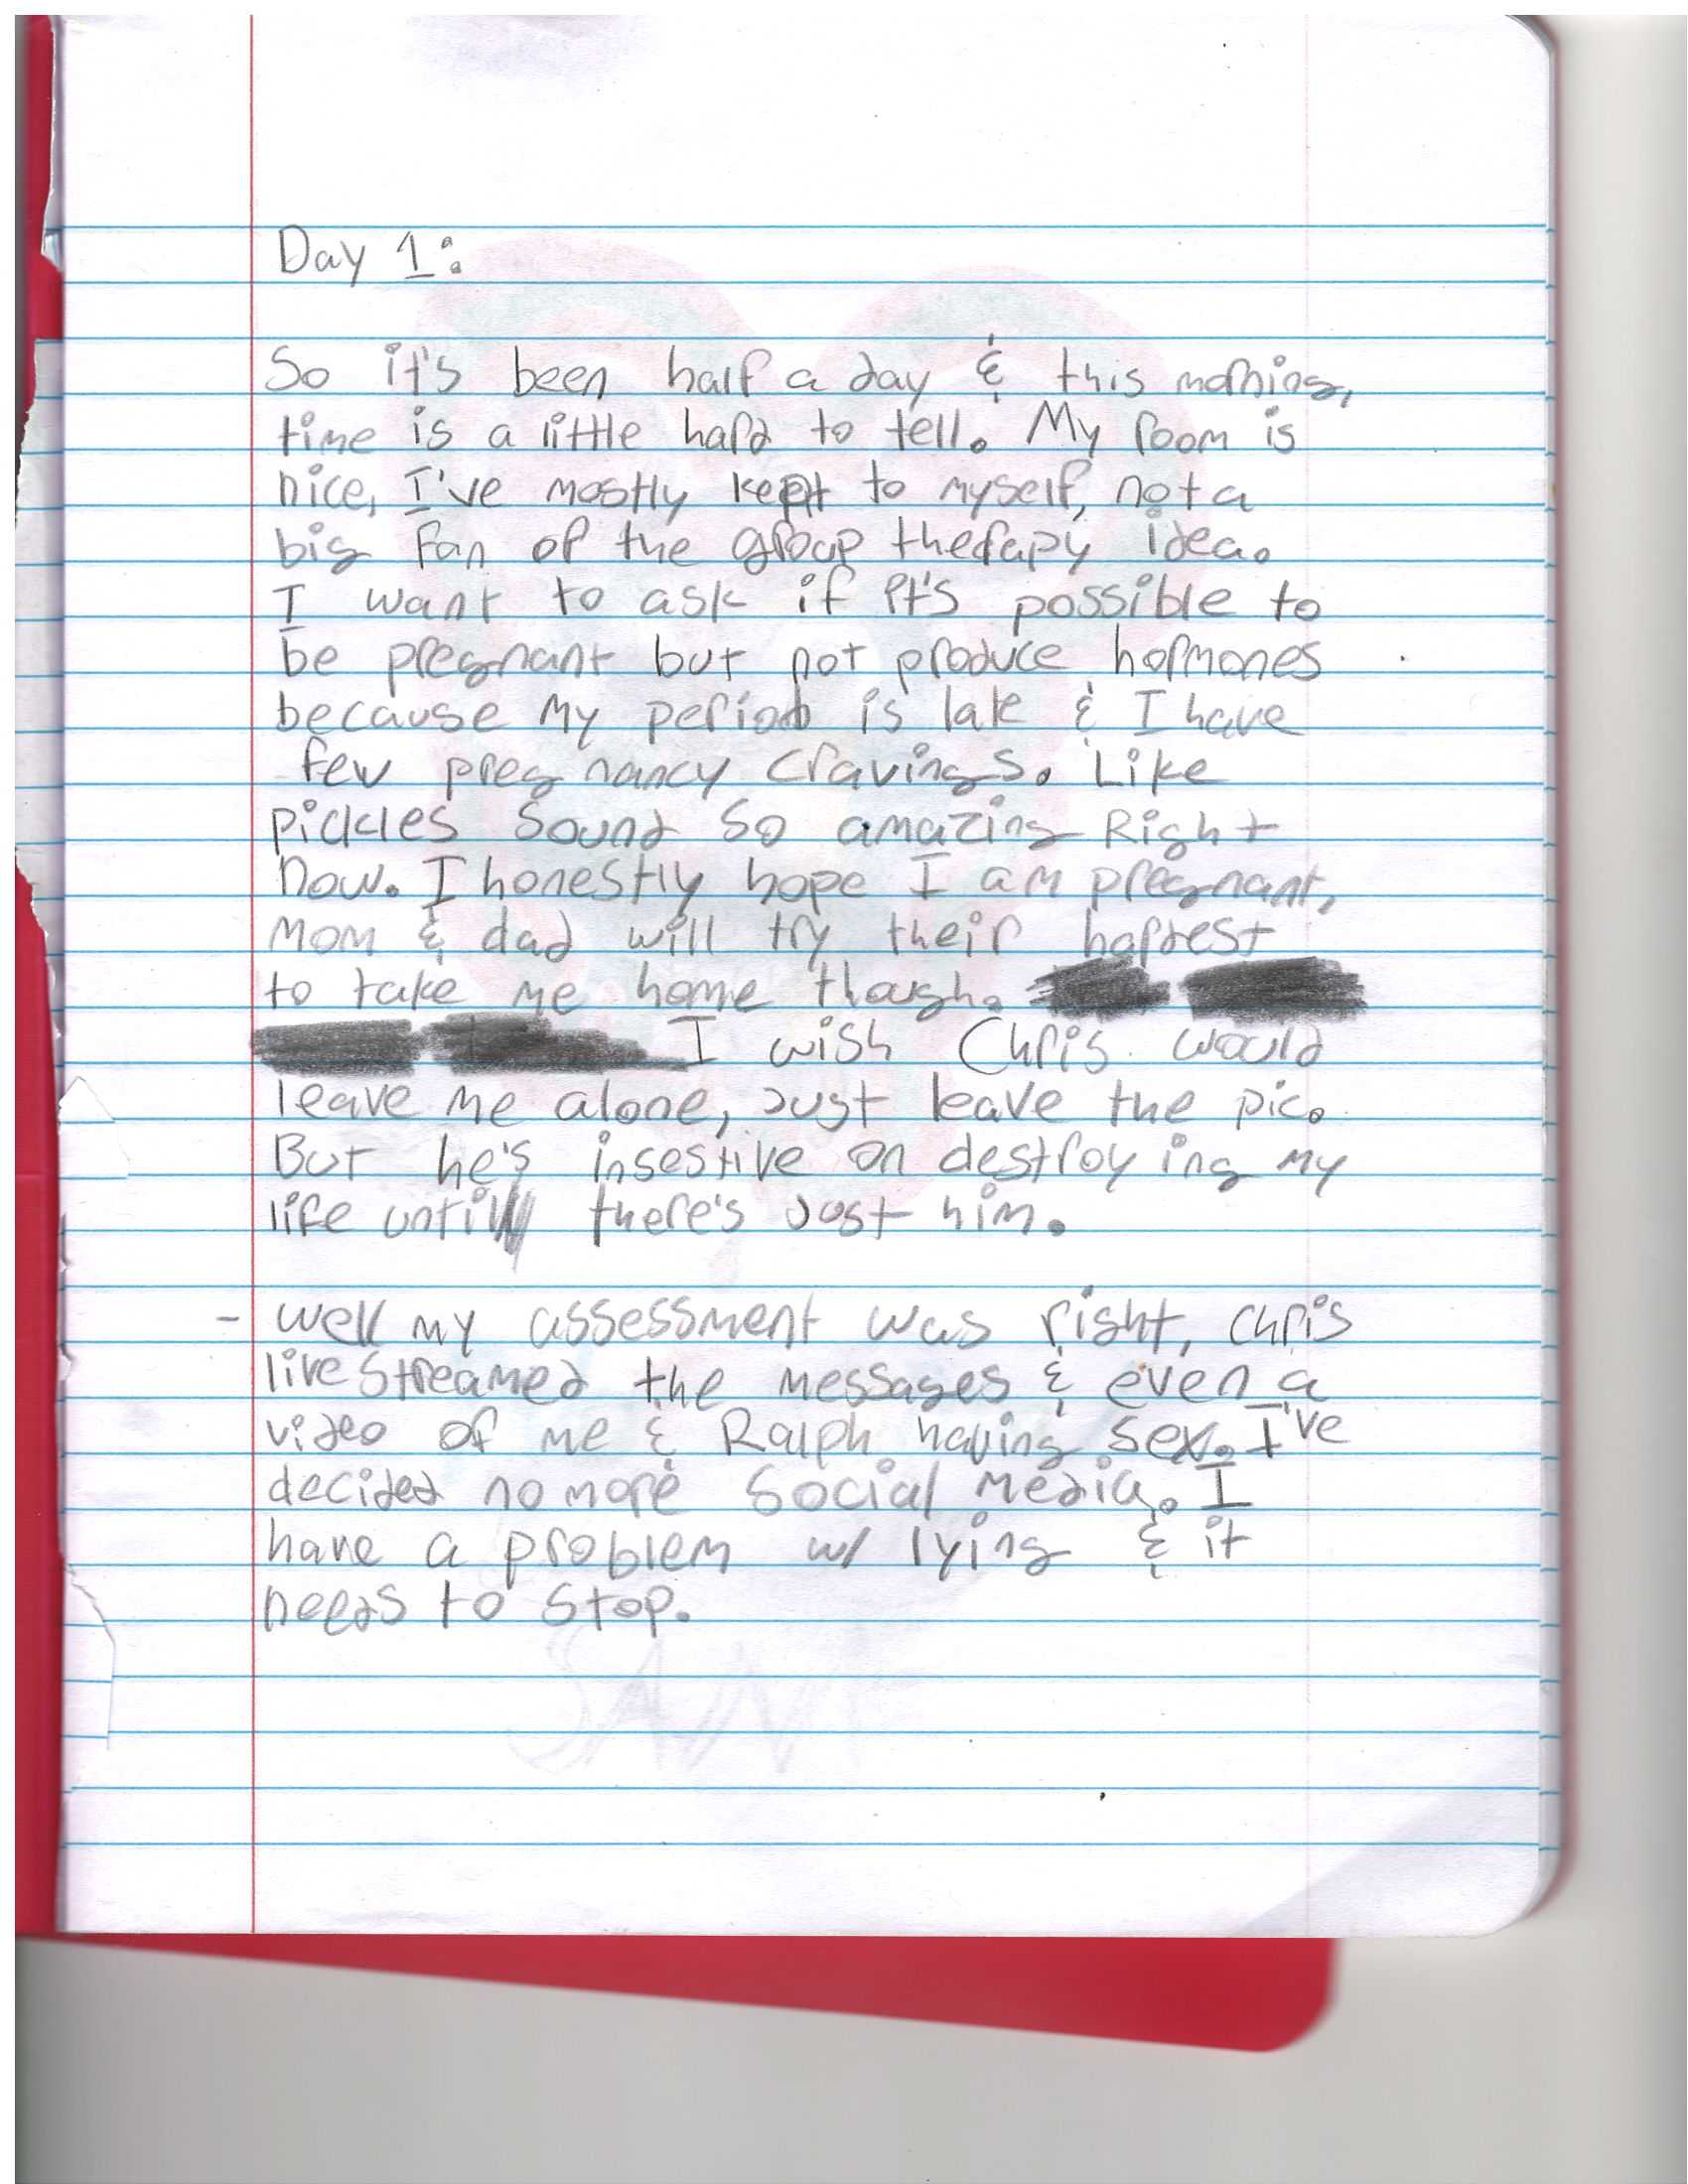 Day 1:
So it's been half a day & this morning,
time is a little hard to tell. My room is
nice, I've mostly kept to myself, not a
big fan of the group therapy idea.
I want to ask if it's possible to
be pregnant but not produce hormones
because my period is late & I have
few pregnancy cravings. Like
pickles sound so amazing Right
now. I honestly hope I am pregnant,
mom & dad will try their hardest
to take me home though.
I wish Chris would
leave me alone, Just leave the pic.
But he's insestive on destroying my
life until there's Just him.
- well my assessment was right, Chris
livestreamed the messages & even a
video of me & Ralph having sex. I've
decided no more social media. I
have a problem w/ lying & it
needs to stop.